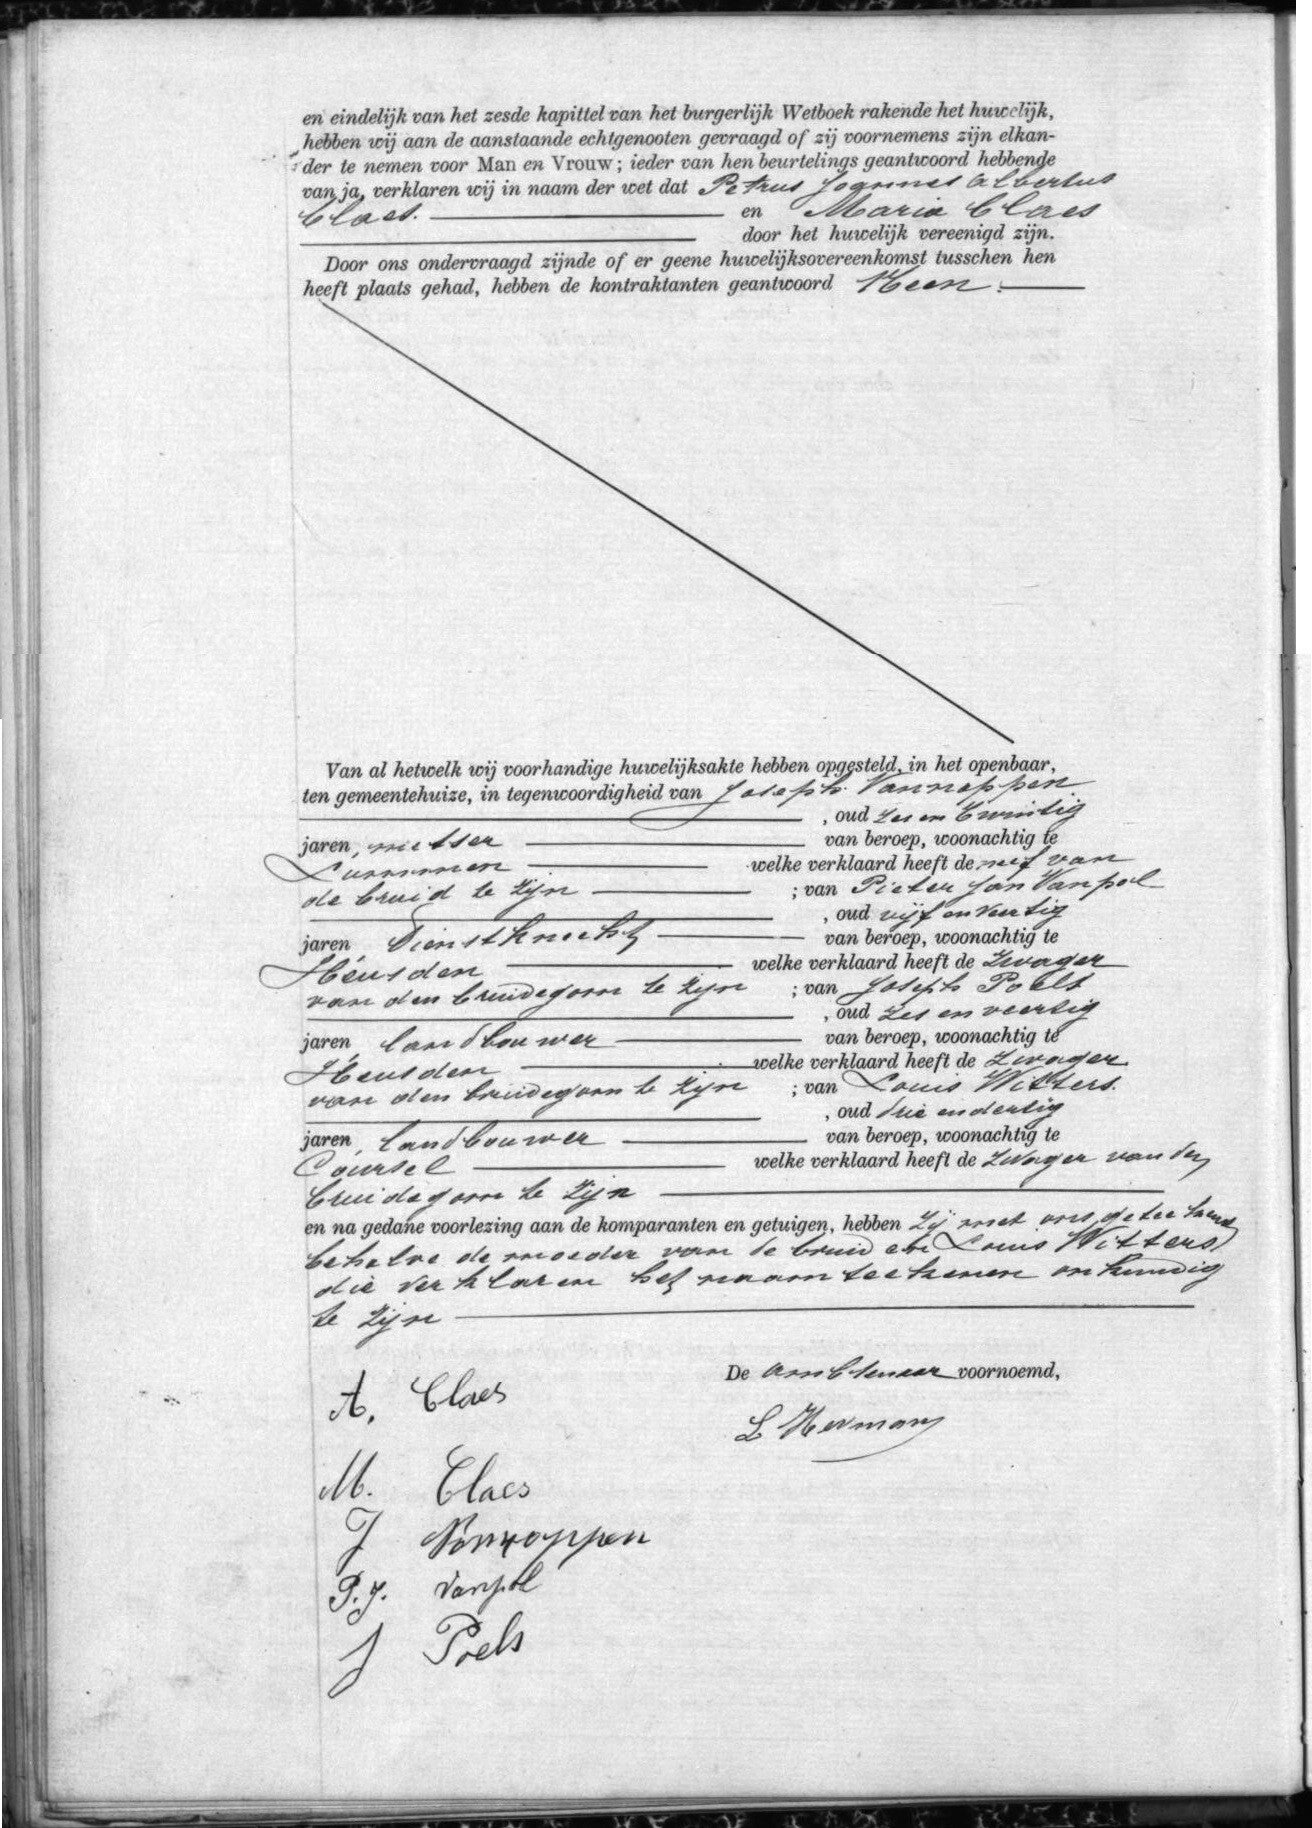 en eindelijk van het zesde kapittel van het burgerlijk Wetboek rakende het huwelijk,
hebben wij aan de aanstaande echtgenooten gevraagd of zij voornemens zijn elkan-
der te nemen voor Man en Vrouw; ieder van hen beurtelings geantwoord hebbende
van ja, verklaren wij in naam der wet dat Petrus Joannes Albertus
Claes. en Maria Claes
door het huwelijk vereenigd zijn.
Door ons ondervraagd zijnde of er geene huwelijksovereenkomst tusschen hen
heeft plaats gehad, hebben de kontraktanten geantwoord Neen.
Van al hetwelk wij voorhandige huwelijksakte hebben opgesteld, in het openbaar,
ten gemeentehuize, in tegenwoordigheid van Joseph Vannoppen
, oud zes en twintig
jaren, metser van beroep, woonachtig te
Lummen welke verklaard heeft de neef van
de bruid te zijn ; van Pieter Jan Vanpol
, oud vijf en veertig
jaren Dienstknecht van beroep, woonachtig te
Heusden welke verklaard heeft de Zwager
van den bruidegom te zijn ; van Joseph Poels
, oud zes en veertig
jaren landbouwer van beroep, woonachtig te
Heusden welke verklaard heeft de Zwager
van den bruidegom te zijn ; van Louis Witters
, oud drie en dertig
jaren, landbouwer van beroep, woonachtig te
Coursel welke verklaard heeft de Zwager van den
bruidegom te zijn
en na gedane voorlezing aan de komparanten en getuigen, hebben zij met ons geteekend
behalve de moeder van de bruid en Louis Witters
die verklaren het naamteekenen onkundig
te zijn
De ambtenaar voornoemd,
A. Claes
L Hermans
M. Claes
J Vannoppen
P. J. Vanpol
J Poels